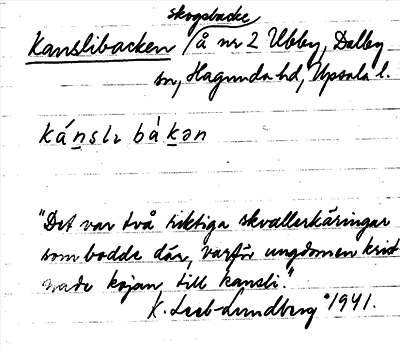 skogsbacke
Kanslibacken /å nr 2 Ubby, Dalby
sn, Hagunda hd, Upsala l.
kánslɩ bàkən
"Det var två riktiga skvallerkäringar
som bodde där, varför ungdomen krist
nade kojan till kansli."
K. Leeb-Lundberg 1941.